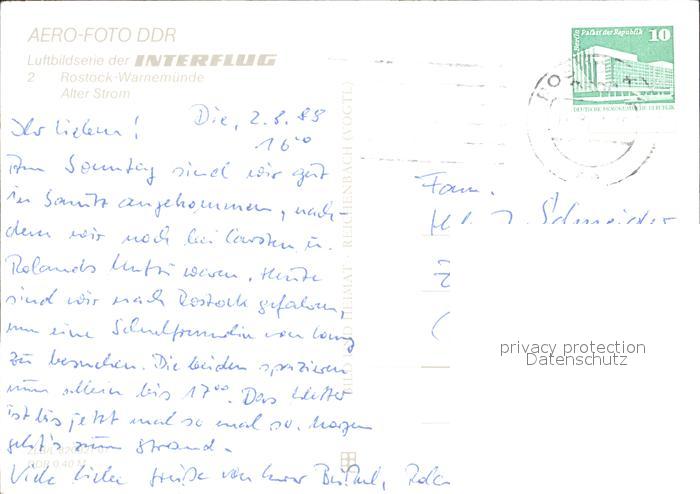 AERO-FOTO DDR
Luftbildserie der INTERFLUG
2 Rostock-Warnemünde
Alter Strom
Berlin, Palast der Republik 10
DEUTSCHE DEMOKRATISCHE REPUBLIK
Ihr Lieben! Die, 2.8.88
16⁰⁰
Am Sonntag sind wir gut
in Sanitz angekommen, nach-
dem wir noch bei Carsten u.
Rolands Mutti waren. Heute
sind wir nach Rostock gefahren,
um eine Schulfreundin von
zu besuchen. Die beiden spazieren
nun allein bis 17⁰⁰. Das Wetter
ist bis jetzt mal so mal so. Morgen
geht's zum Strand.
Viele liebe Grüße von
Fam.
Schneider
BILD UND HEIMAT · REICHENBACH (VOGTL)
DDR 0,40 M
privacy protection
Datenschutz